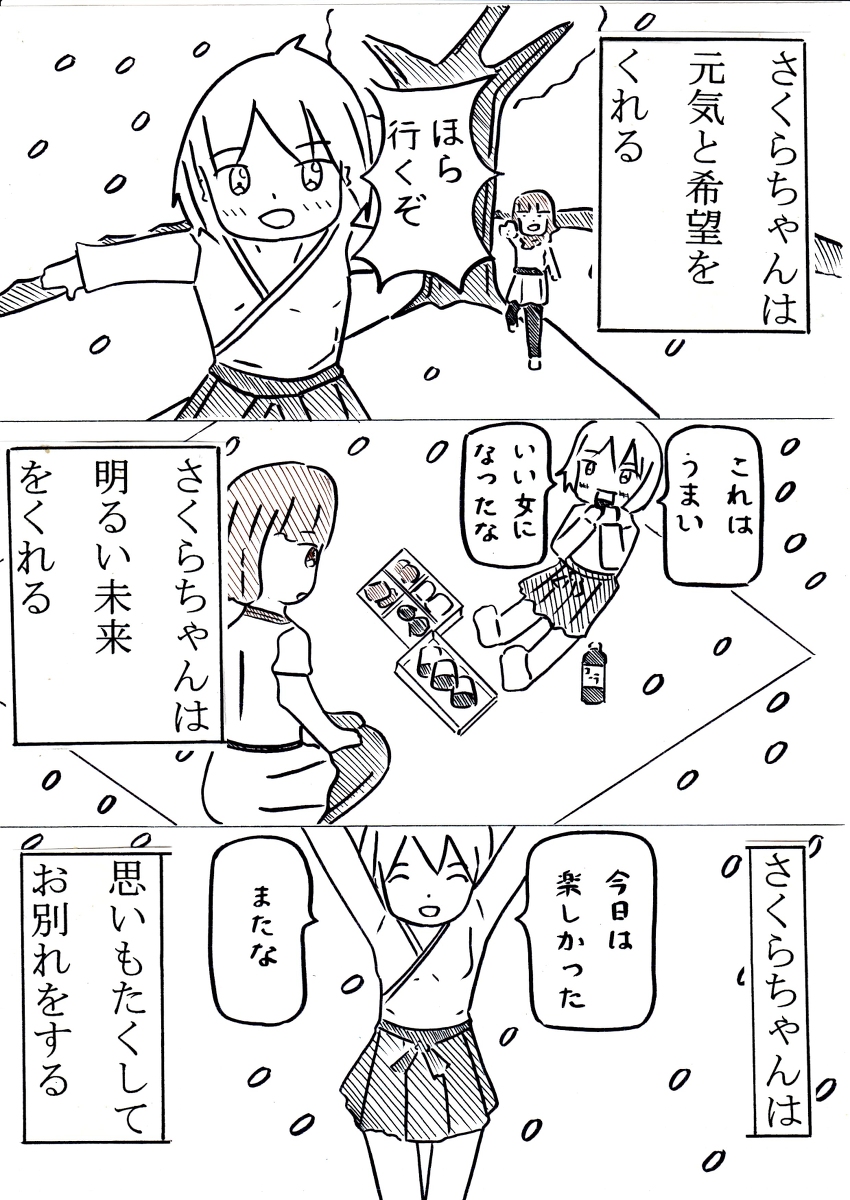 さくらちゃんは
元気と希望を
くれる
ほら
行くぞ
これは
うまい
いい女に
なったな
さくらちゃんは
明るい未来
をくれる
コーラ
さくらちゃんは
今日は
楽しかった
またな
思いもたくして
お別れをする